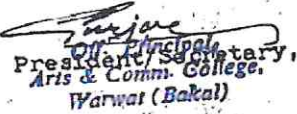 Off. Principal,
President/Secretary,
Arts & Comm. College,
Warwat (Bakal)